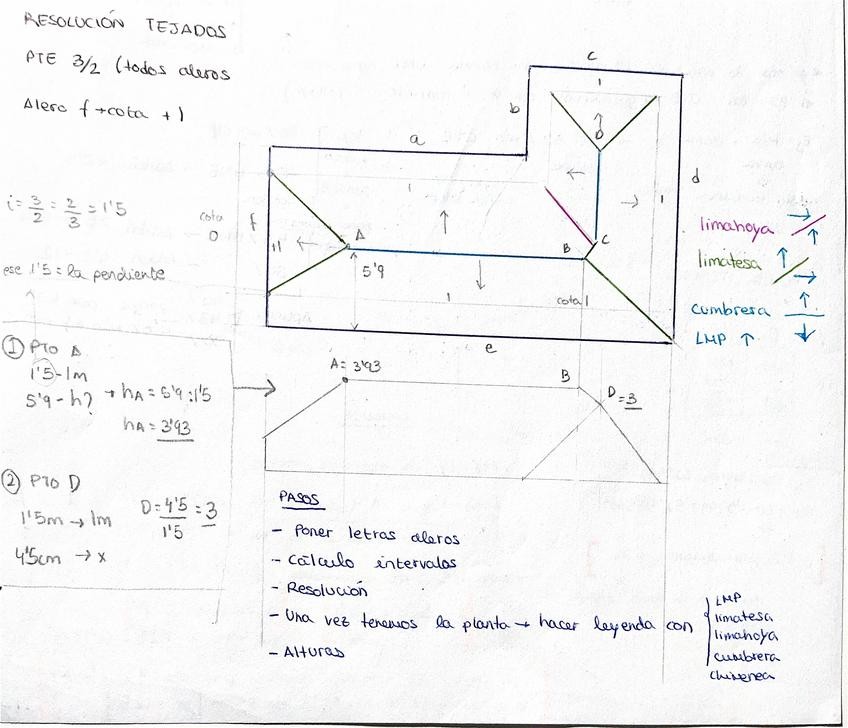 RESOLUCIÓN TEJADOS
PTE 3/2 (todos aleros
Alero f → cota +1
i = 3/2 = 2/3 = 1'5
ese 1'5 = la pendiente
cota
0
a
b
c
d
e
f
1
1
1
1
1'1
A
B
C
D
5'9
cota 1
limahoya
limatesa
cumbrera
LMP
① PTO A
1'5 - 1m
5'9 - h? → hA = 5'9 : 1'5
hA = 3'93
② PTO D
1'5m → 1m
4'5cm → x
D = 4'5/1'5 = 3
A = 3'93
B
D = 3
PASOS
- Poner letras aleros
- Cálculo intervalos
- Resolución
- Una vez tenemos la planta → hacer leyenda con
LMP
limatesa
limahoya
cumbrera
chimenea
- Alturas